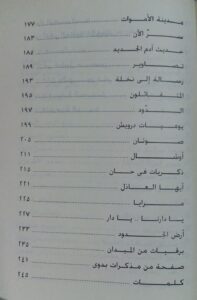 مدينة الأموات ... ١٧٧
سرّ الآن ... ١٨٣
حديث آدم الجديد ... ١٨٥
تصاوير ... ١٨٩
رسالة إلى نخلة ... ١٩٣
المتفائلون ... ١٩٥
الدّود ... ١٩٧
يوميات درويش ... ١٩٩
صوتان ... ٢٠٥
أوشال ... ٢١١
ذكريات في حان ... ٢١٥
أيها العاذل ... ٢٢١
مرايا ... ٢٢٥
يا دارنا .. يا دار ... ٢٢٧
أرض الجدود ... ٢٣٣
برقيات من الميدان ... ٢٣٥
صفحة من مذكرات بدوي ... ٢٤١
كلمات ... ٢٤٥